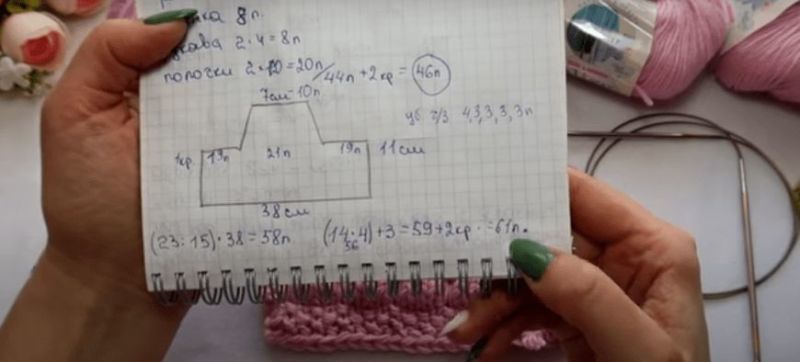 8п.
рукава 2·4=8п
полочки 2·10=20п/44п+2кр=46п
7см-10п.
уб. 2/3 4,3,3,3,3п
1кр 19п 21п 19п 11см
38см
(23:15)·38=58п (14·4)+3=59+2кр.=61п.
56